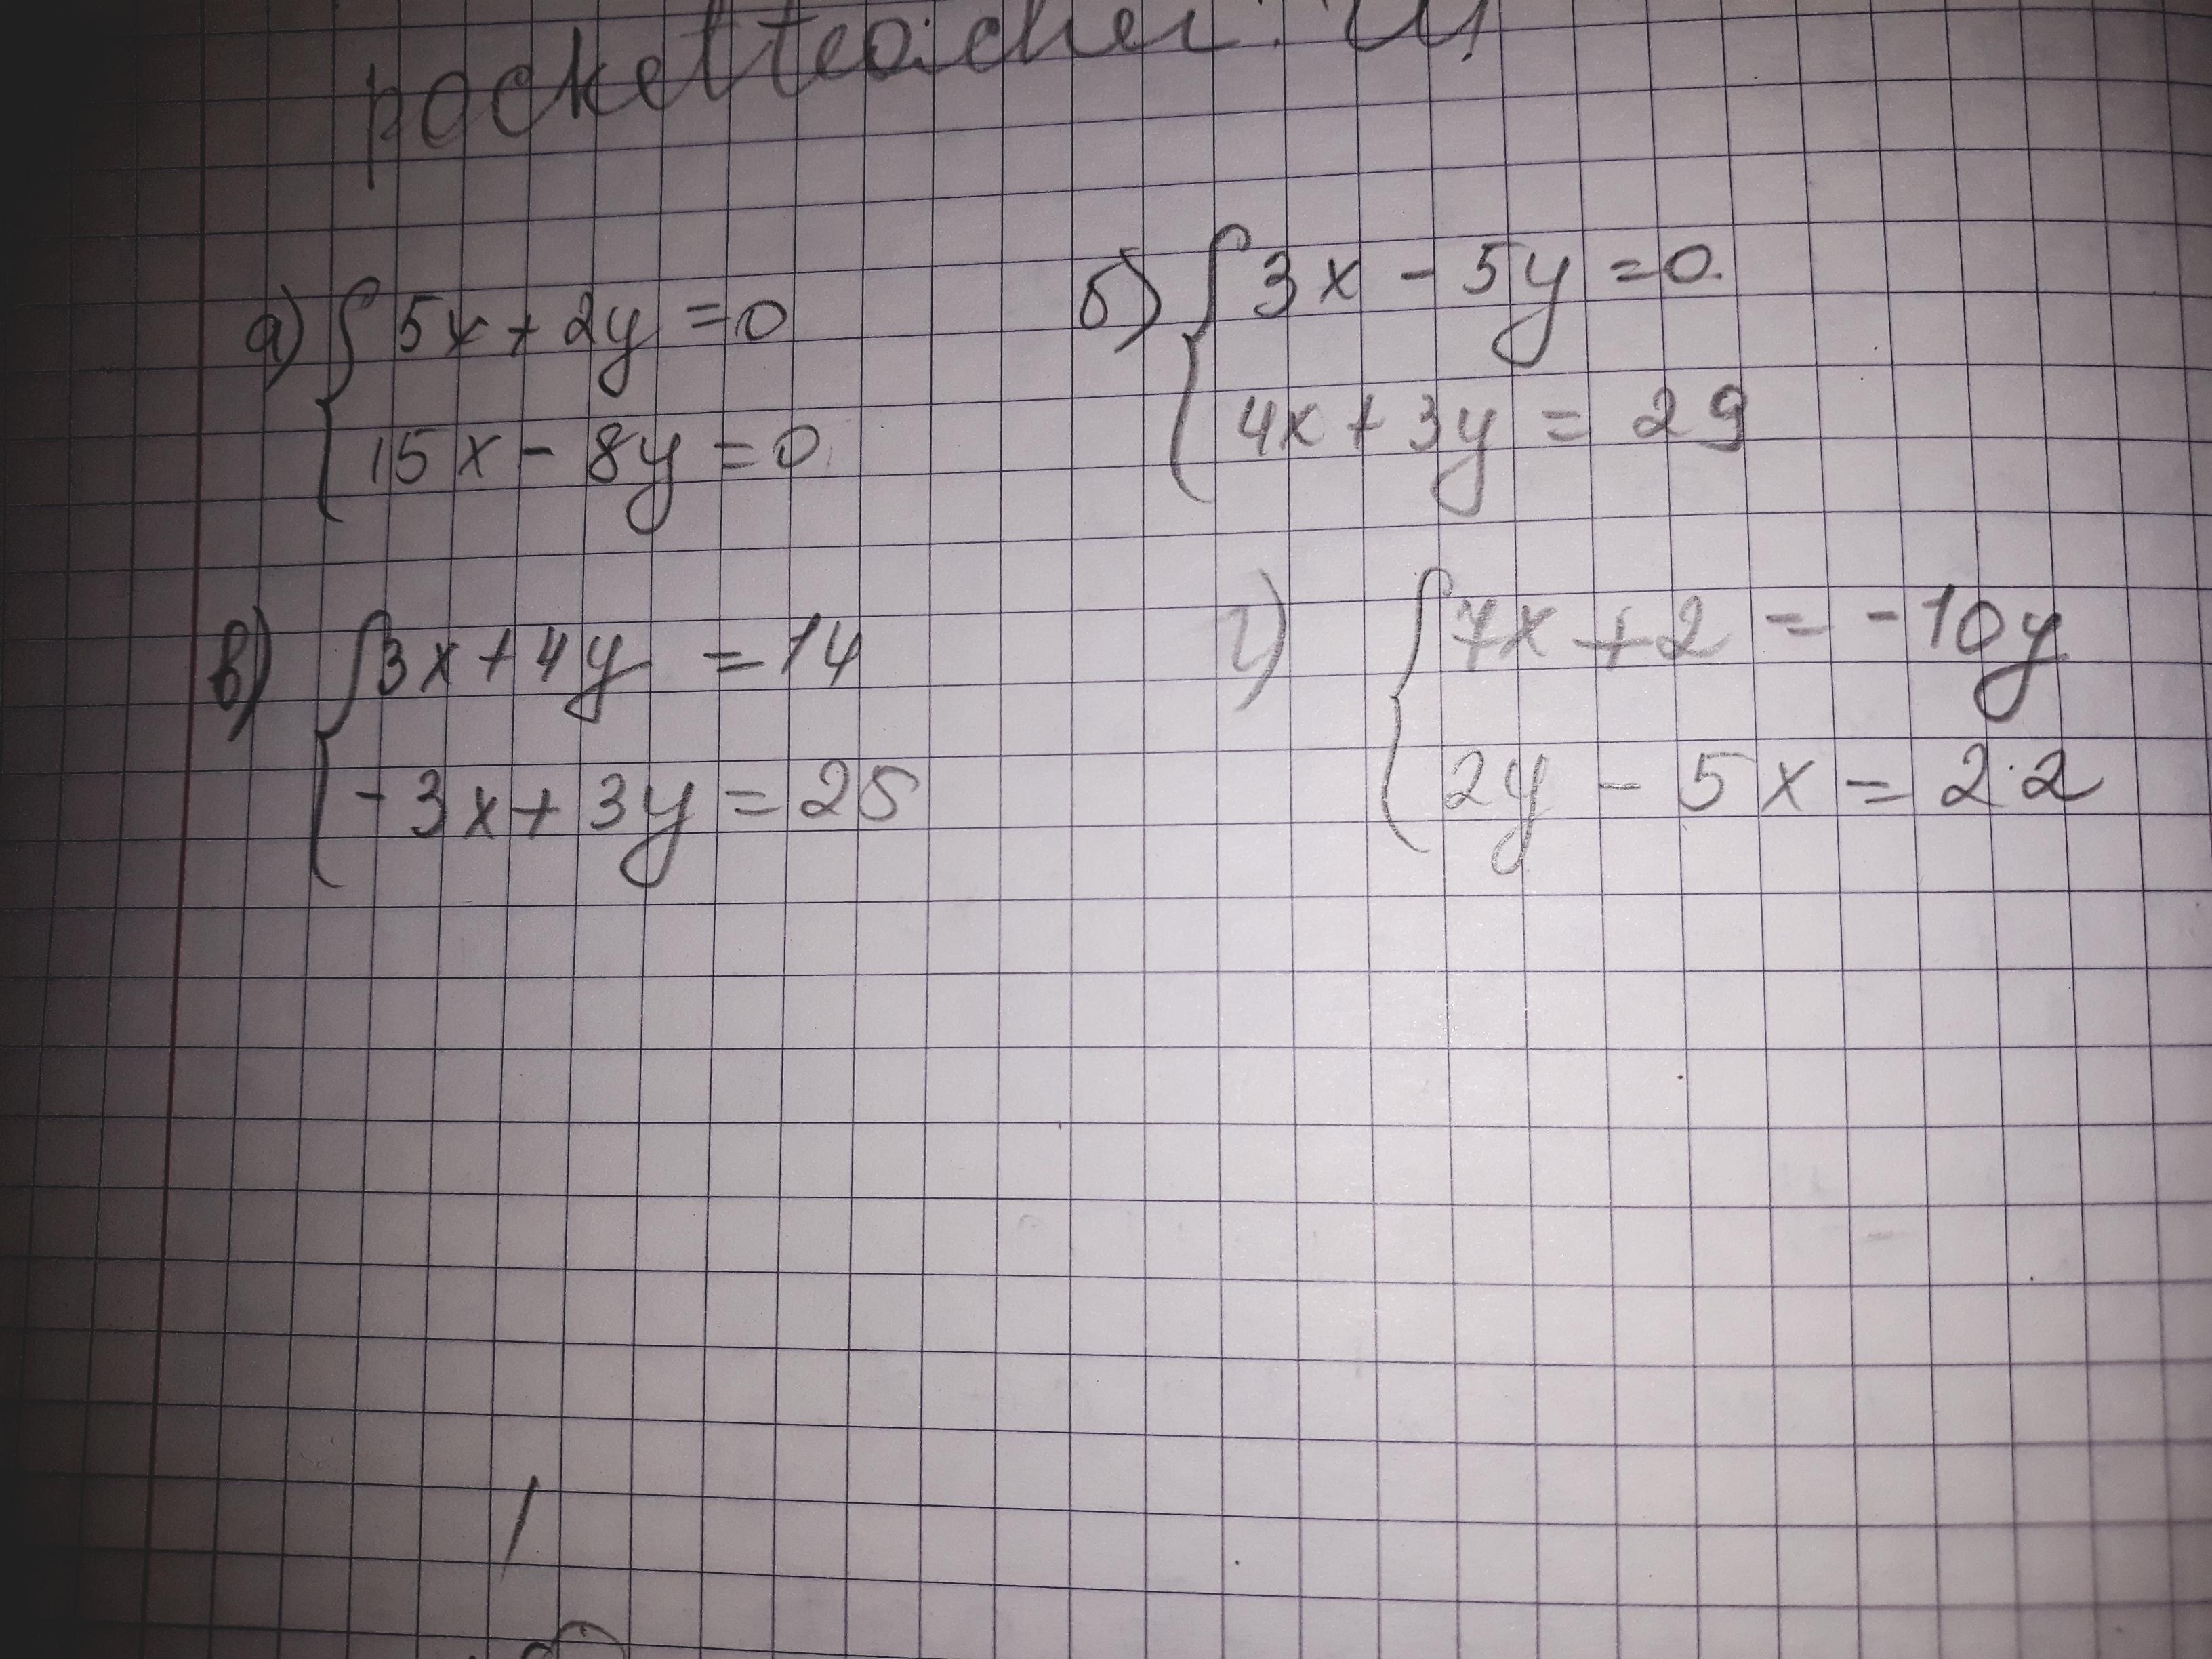 pocketteacher.
а) { 5x + 2y = 0
15x - 8y = 0
б) { 3x - 5y = 0.
4x + 3y = 29
в) { 3x + 4y = 14
-3x + 3y = 25
г) { 7x + 2 = -10y
2y - 5x = 22